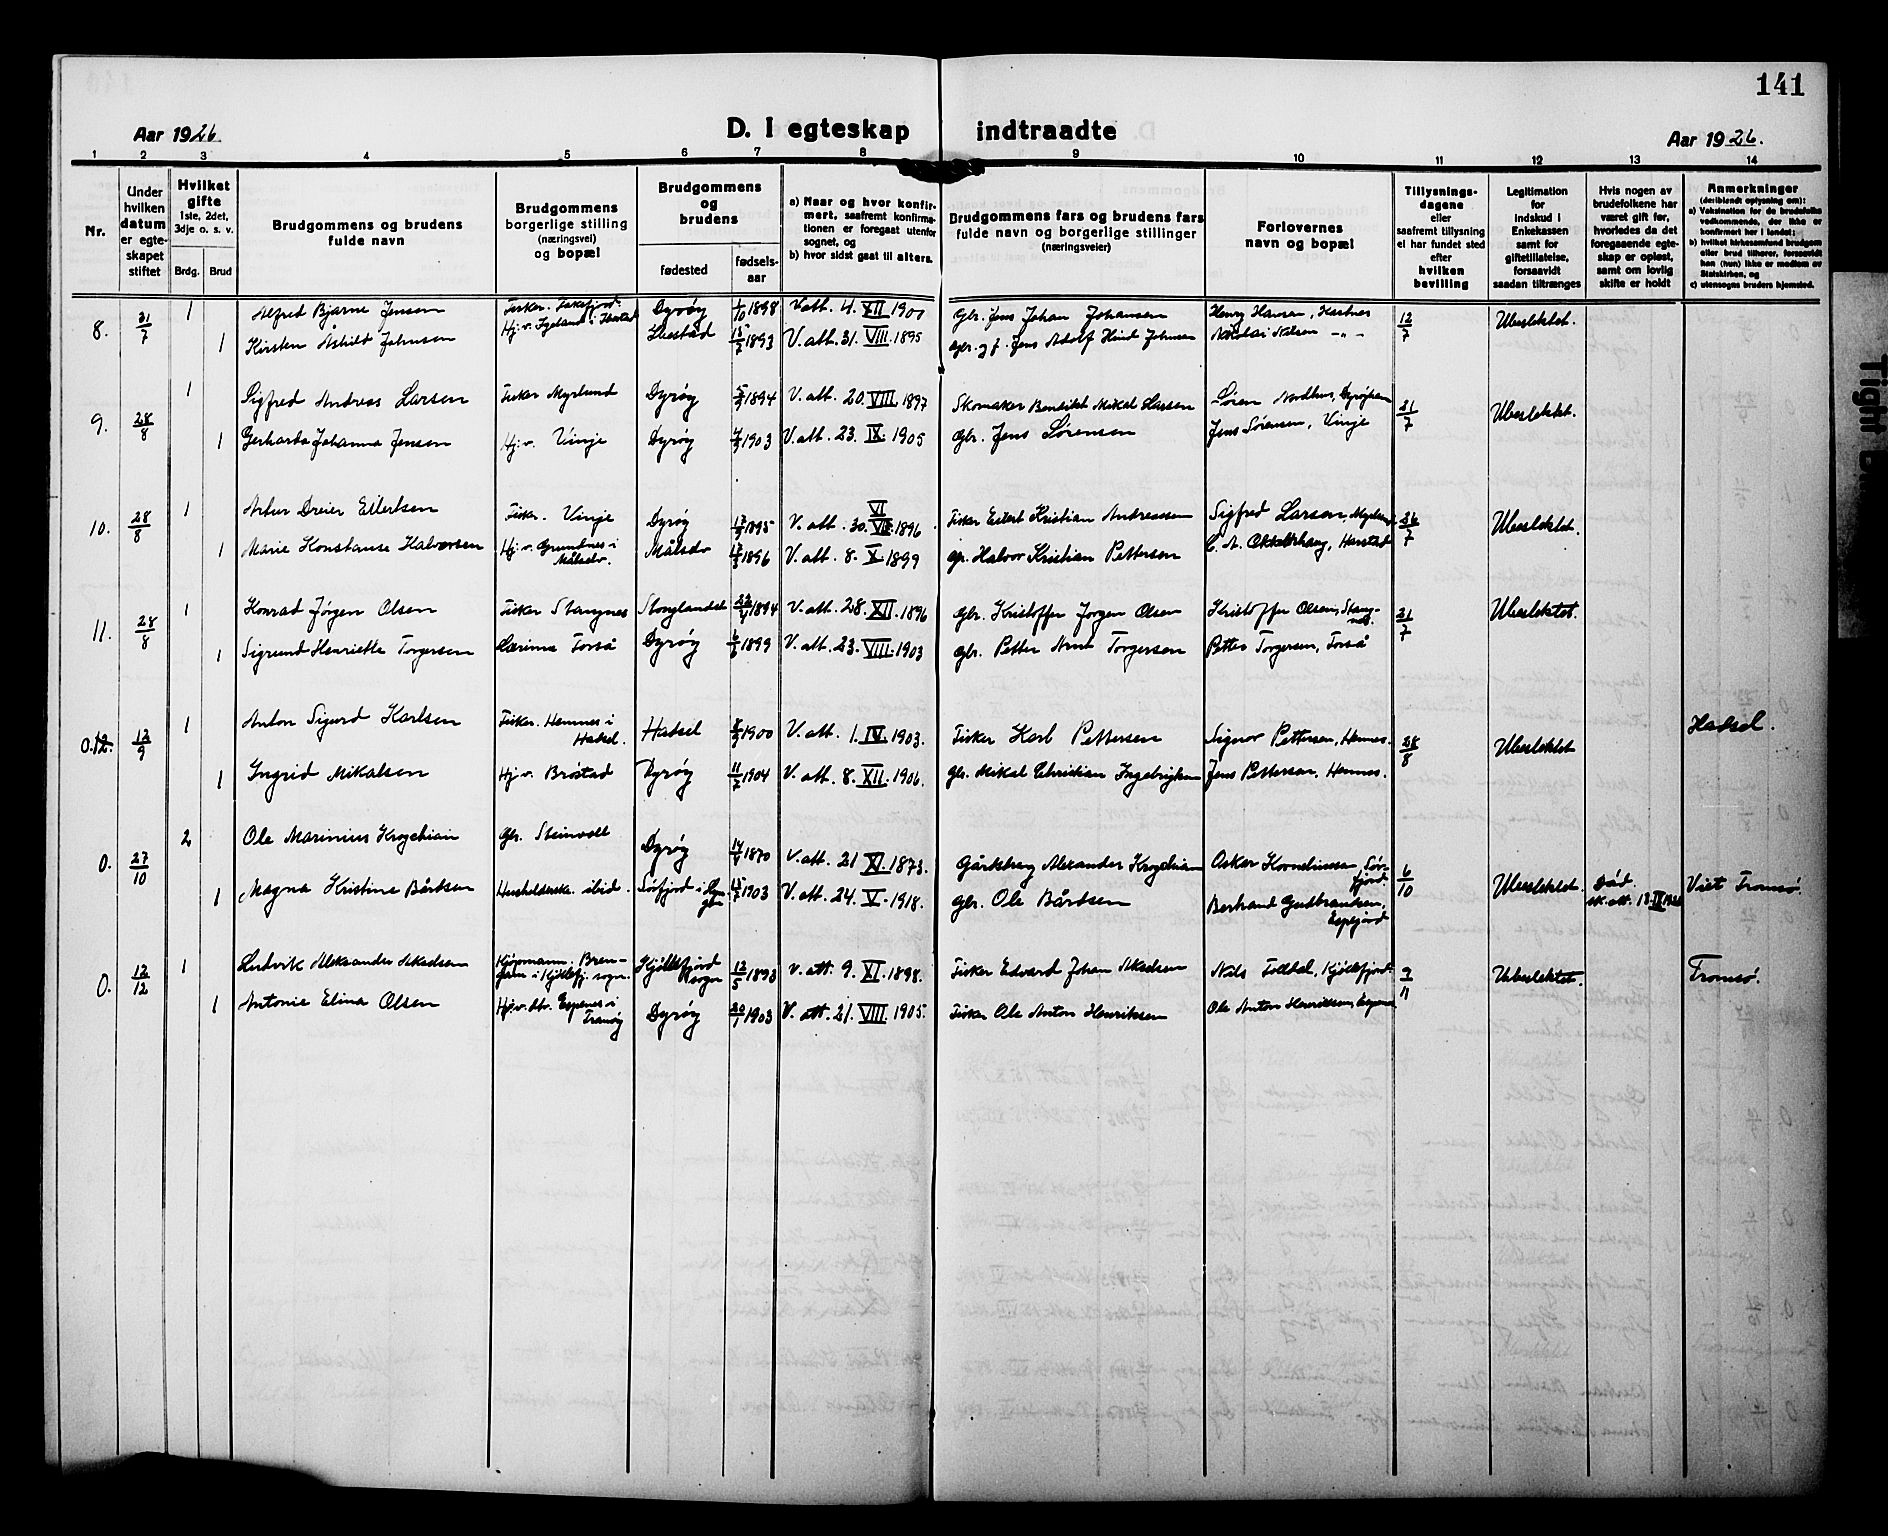 141
Aar 1926.
D. I egteskap indtraadte
Aar 1926.
1 2 3 4 5 6 7 8 9 10 11 12 13 14
Nr.
Under hvilken datum er egteskapet stiftet
Hvilket gifte
1ste, 2det, 3dje o. s. v.
Brdg. Brud
Brudgommens og brudens fulde navn
Brudgommens borgerlige stilling (næringsvei) og bopæl
Brudgommens og brudens
fødested
fødsels-aar
a) Naar og hvor konfirmert, saafremt konfirmationen er foregaat utenfor sognet, og
b) hvor sidst gaat til alters.
Brudgommens fars og brudens fars fulde navn og borgerlige stillinger (næringsveier)
Forlovernes navn og bopæl
Tillysnings-dagene eller saafremt tillysning ei har fundet sted efter hvilken bevilling
Legitimation for indskud i Enkekassen samt for giftetillatelse, forsaavidt saadan tiltrænges
Hvis nogen av brudefolkene har været gift før, hvorledes da det foregaaende egteskap er opløst, samt om lovlig skifte er holdt
Anmerkninger
(deriblandt oplysning om):
a) Vaksination for de brudefolks vedkommende, der ikke er konfirmert her i landet;
b) hvilket kirkesamfund brudgom eller brud tilhører, forsaavidt han (hun) ikke er medlem av Statskirken, og
c) utensogns bruders hjemsted.
8. 31/7 1 Alfred Bjarne Jensen Fisker. Dyrøy 1/10 1898 V. att. 4. XII 1900 Gbr. Jens Johan Johansen Henry Hansen, Kastnes 12/7 Ubeslektet.
1 Kirsten Åshild Johnsen Hj. v. Igeland i Ibestad Ibestad 15/7 1893 V. att. 31. VIII 1895 Gbr. g. f. Jens Adolf Hind Johnsen Nikolai Nilsen -"-
9. 28/8 1 Sigfred Andreas Larsen Fisker Myrlund Dyrøy 5/9 1894 V. att. 20. VIII 1897 Skomaker Benedikt Mikal Larsen Søren Nordhus, Dyrøyhamn 31/7 Ubeslektet.
1 Gerharda Johanna Jensen Hj. v. Vinje Dyrøy 1903 V. att. 23. IX. 1905 Gbr. Jens Sørensen Jens Sørensen, Vinje
10. 28/8 1 Artur Dreier Eilertsen Fisker. Vinje Dyrøy 1895 V. att. 30. VI 1896. Fisker Eilert Kristian Andreassen Sigfred Larsen, Myrlund 26/7 Ubeslektet.
1 Marie Konstanse Halvorsen Hj. v. Grundnes i Målselv. Målselv 1896 V. att. 8. X. 1899 Gr. Halvor Kristian Pettersen Harstad
11. 28/8 1 Konrad Jørgen Olsen Fisker Stangnes Stonglandet 1894 V. att. 28. XII. 1896 Gbr. Kristoffer Jørgen Olsen Kristoffer Olsen, Stangnes. 31/7 Ubeslektet.
1 Sigrund Henriette Torgersen Lærerinne Forså Dyrøy 1899 V. att. 23. VIII. 1903 Gbr. Petter Arnt Torgersen Petter Torgersen, Forså
0. 12. 12/9 1 Anton Sigurd Karlsen Fisker. Hennes i Hadsel. Hadsel 1900 V. att. 1. IV. 1903. Fisker Karl Pettersen Signor Pettersen, Hennes. 28/8 Ubeslektet Hadsel.
1 Ingrid Mikalsen Hj. v. Brøstad Dyrøy 1904 V. att. 8. XII. 1906. Gbr. Mikal Christian Ingebrigtsen Jens Pettersen, Hennes.
0. 27/10 2 Ole Marinius Krogshian Gbr. Steinvoll Dyrøy 1870 V. att. 21 XI. 1873. Gårdbrug Alexander Krogshian Oskar Kornelinssen, Sørfjord. 6/10 Ubeslektet. Død. Viet Tromsø.
1 Magna Kristine Bårdsen Husholderske. ibid. Sørfjord i 1903 V. att. 24. V. 1918. Gbr. Ole Bårdsen Bertrand Gudbrandsen, Espejord
0. 12/12 1 Ludvik Aleksander Madsen Kjøpmann. i Kjøllefj. sogn. Kjøllefjord sogn 12/5 1893 V. att. 9. XI. 1898. Fisker Edvard Johan Madsen Nils Kjøllefjord. 9/11 Ubeslektet. Tromsø.
1 Antonie Elina Olsen Espenes i Tranøy Dyrøy 20/1 1903 V. att. 21. VIII. 1905. Fisker Ole Anton Henriksen Ole Anton Henriksen, Espenes